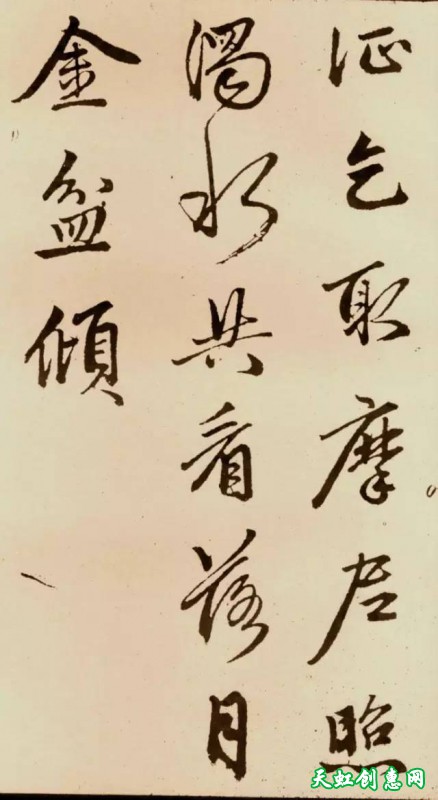 证乞取摩尼照
濁水共看落月
金盆傾
天虹创惠网